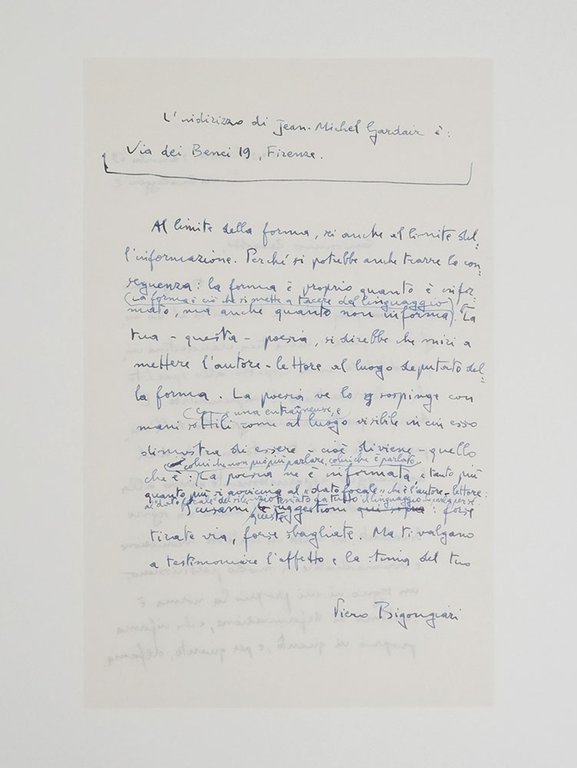 L'indirizzo di Jean-Michel Gardair è:
Via dei Benci 19, Firenze.
Al limite della forma, si anche al limite del=
l'informazione. Perché si potrebbe anche trarre la con=
seguenza: la forma è proprio quanto è infor=
(la forma è ciò che si mette a tacere del linguaggio)
mato, ma anche quanto non informa. La
tua - questa - poesia, si direbbe che miri a
mettere l'autore-lettore al luogo deputato del=
la forma. La poesia ve lo sospinge con
(come una entraîneuse, e
mani sottili come al luogo visibile in cui esso
dimostra di essere - cioè diviene - quello
colui che non può più parlare, colui che è parlato.
che è: (La poesia ne è informata, e tanto più
quanto più si avvicina al "dato focale" che è l'autore-lettore:
al dato focale del silenzio tentato da tutto il linguaggio
Scusami queste suggestioni qui sopra: forse
tirate via, forse sbagliate. Ma ti valgano
a testimoniare l'affetto e la stima del tuo
Piero Bigongiari